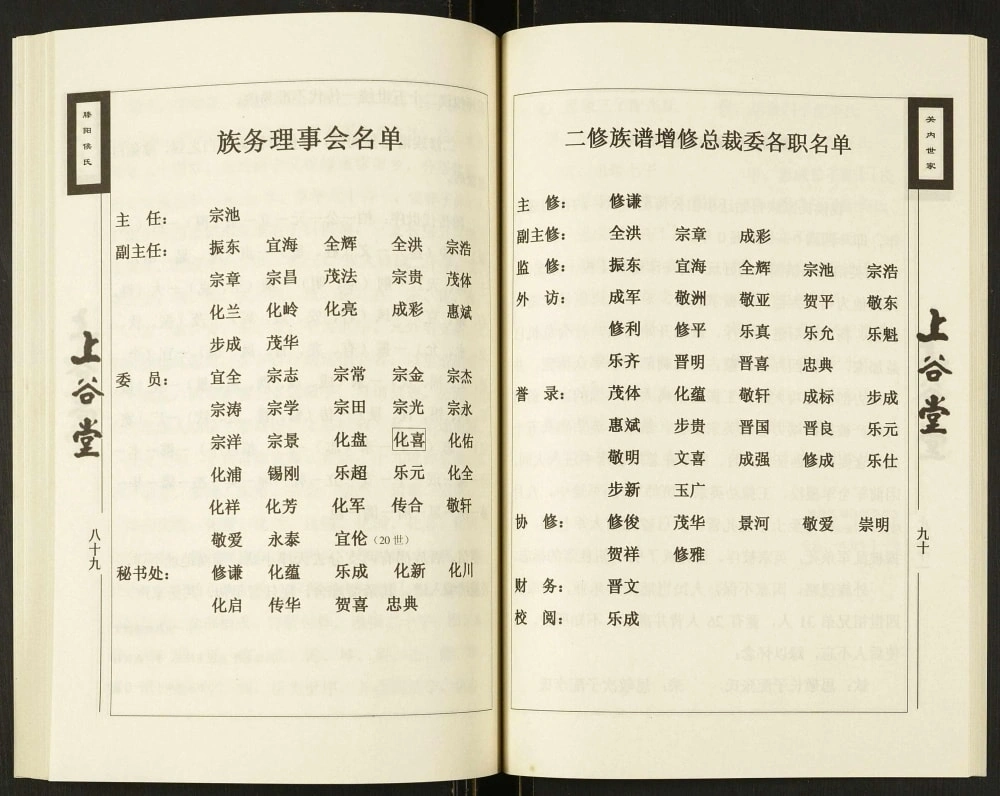 滕阳侯氏
族务理事会名单
主 任： 宗池
副主任： 振东 宜海 全辉 全洪 宗浩
宗章 宗昌 茂法 宗贵 茂体
化兰 化岭 化亮 成彩 惠斌
步成 茂华
委 员： 宜全 宗志 宗常 宗金 宗杰
宗涛 宗学 宗田 宗光 宗永
宗洋 宗景 化盘 化喜 化佑
化浦 锡刚 乐超 乐元 化全
化祥 化芳 化军 传合 敬轩
敬爱 永泰 宜伦（20世）
秘书处： 修谦 化蕴 乐成 化新 化川
化启 传华 贺喜 忠典
上谷堂
八十九
关内世家
二修族谱增修总裁委各职名单
主 修： 修谦
副主修： 全洪 宗章 成彩
监 修： 振东 宜海 全辉 宗池 宗浩
外 访： 成军 敬洲 敬亚 贺平 敬东
修利 修平 乐真 乐允 乐魁
乐齐 晋明 晋喜 忠典
誉 录： 茂体 化蕴 敬轩 成标 步成
惠斌 步贵 晋国 晋良 乐元
敬明 文喜 成强 修成 乐仕
步新 玉广
协 修： 修俊 茂华 景河 敬爱 崇明
贺祥 修雅
财 务： 晋文
校 阅： 乐成
上谷堂
九十